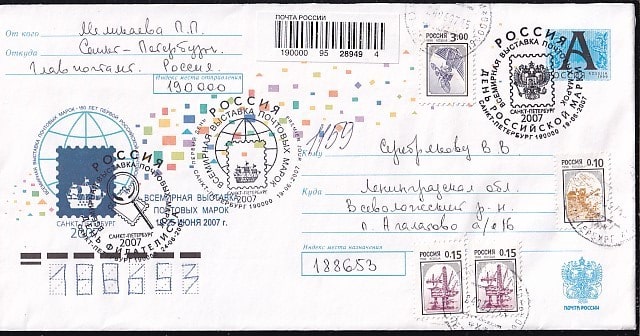 От кого Мелинаева П.П.
Откуда Санкт-Петербург,
Главпочтамт, Россия
Индекс места отправления
190000
ПОЧТА РОССИИ
190000 95 28949 4
РОССИЯ 3.00
РОССИЯ
ВСЕМИРНАЯ ВЫСТАВКА ПОЧТОВЫХ МАРОК
САНКТ-ПЕТЕРБУРГ
2007
ДЕНЬ РОССИЙСКОЙ МАРКИ
САНКТ-ПЕТЕРБУРГ 190000 19-06-2007
А
РОССИЯ
ВСЕМИРНАЯ ВЫСТАВКА ПОЧТОВЫХ МАРОК
САНКТ-ПЕТЕРБУРГ
2007
ВСЕМИРНАЯ ВЫСТАВКА ПОЧТОВЫХ МАРОК
РОССИЯ
САНКТ-ПЕТЕРБУРГ
2007
ДЕНЬ ФИЛАТЕЛИИ
САНКТ-ПЕТЕРБУРГ
ВСЕМИРНАЯ ВЫСТАВКА
ПОЧТОВЫХ МАРОК
19-25 ИЮНЯ 2007 г.
1159
Кому Серебрякову В В
Куда Ленинградская обл.
Всеволожский р-н
п. Агалатово а/я 16
Индекс места назначения
188653
РОССИЯ 0.10
РОССИЯ 0.15
РОССИЯ 0.15
188653
ПОЧТА РОССИИ